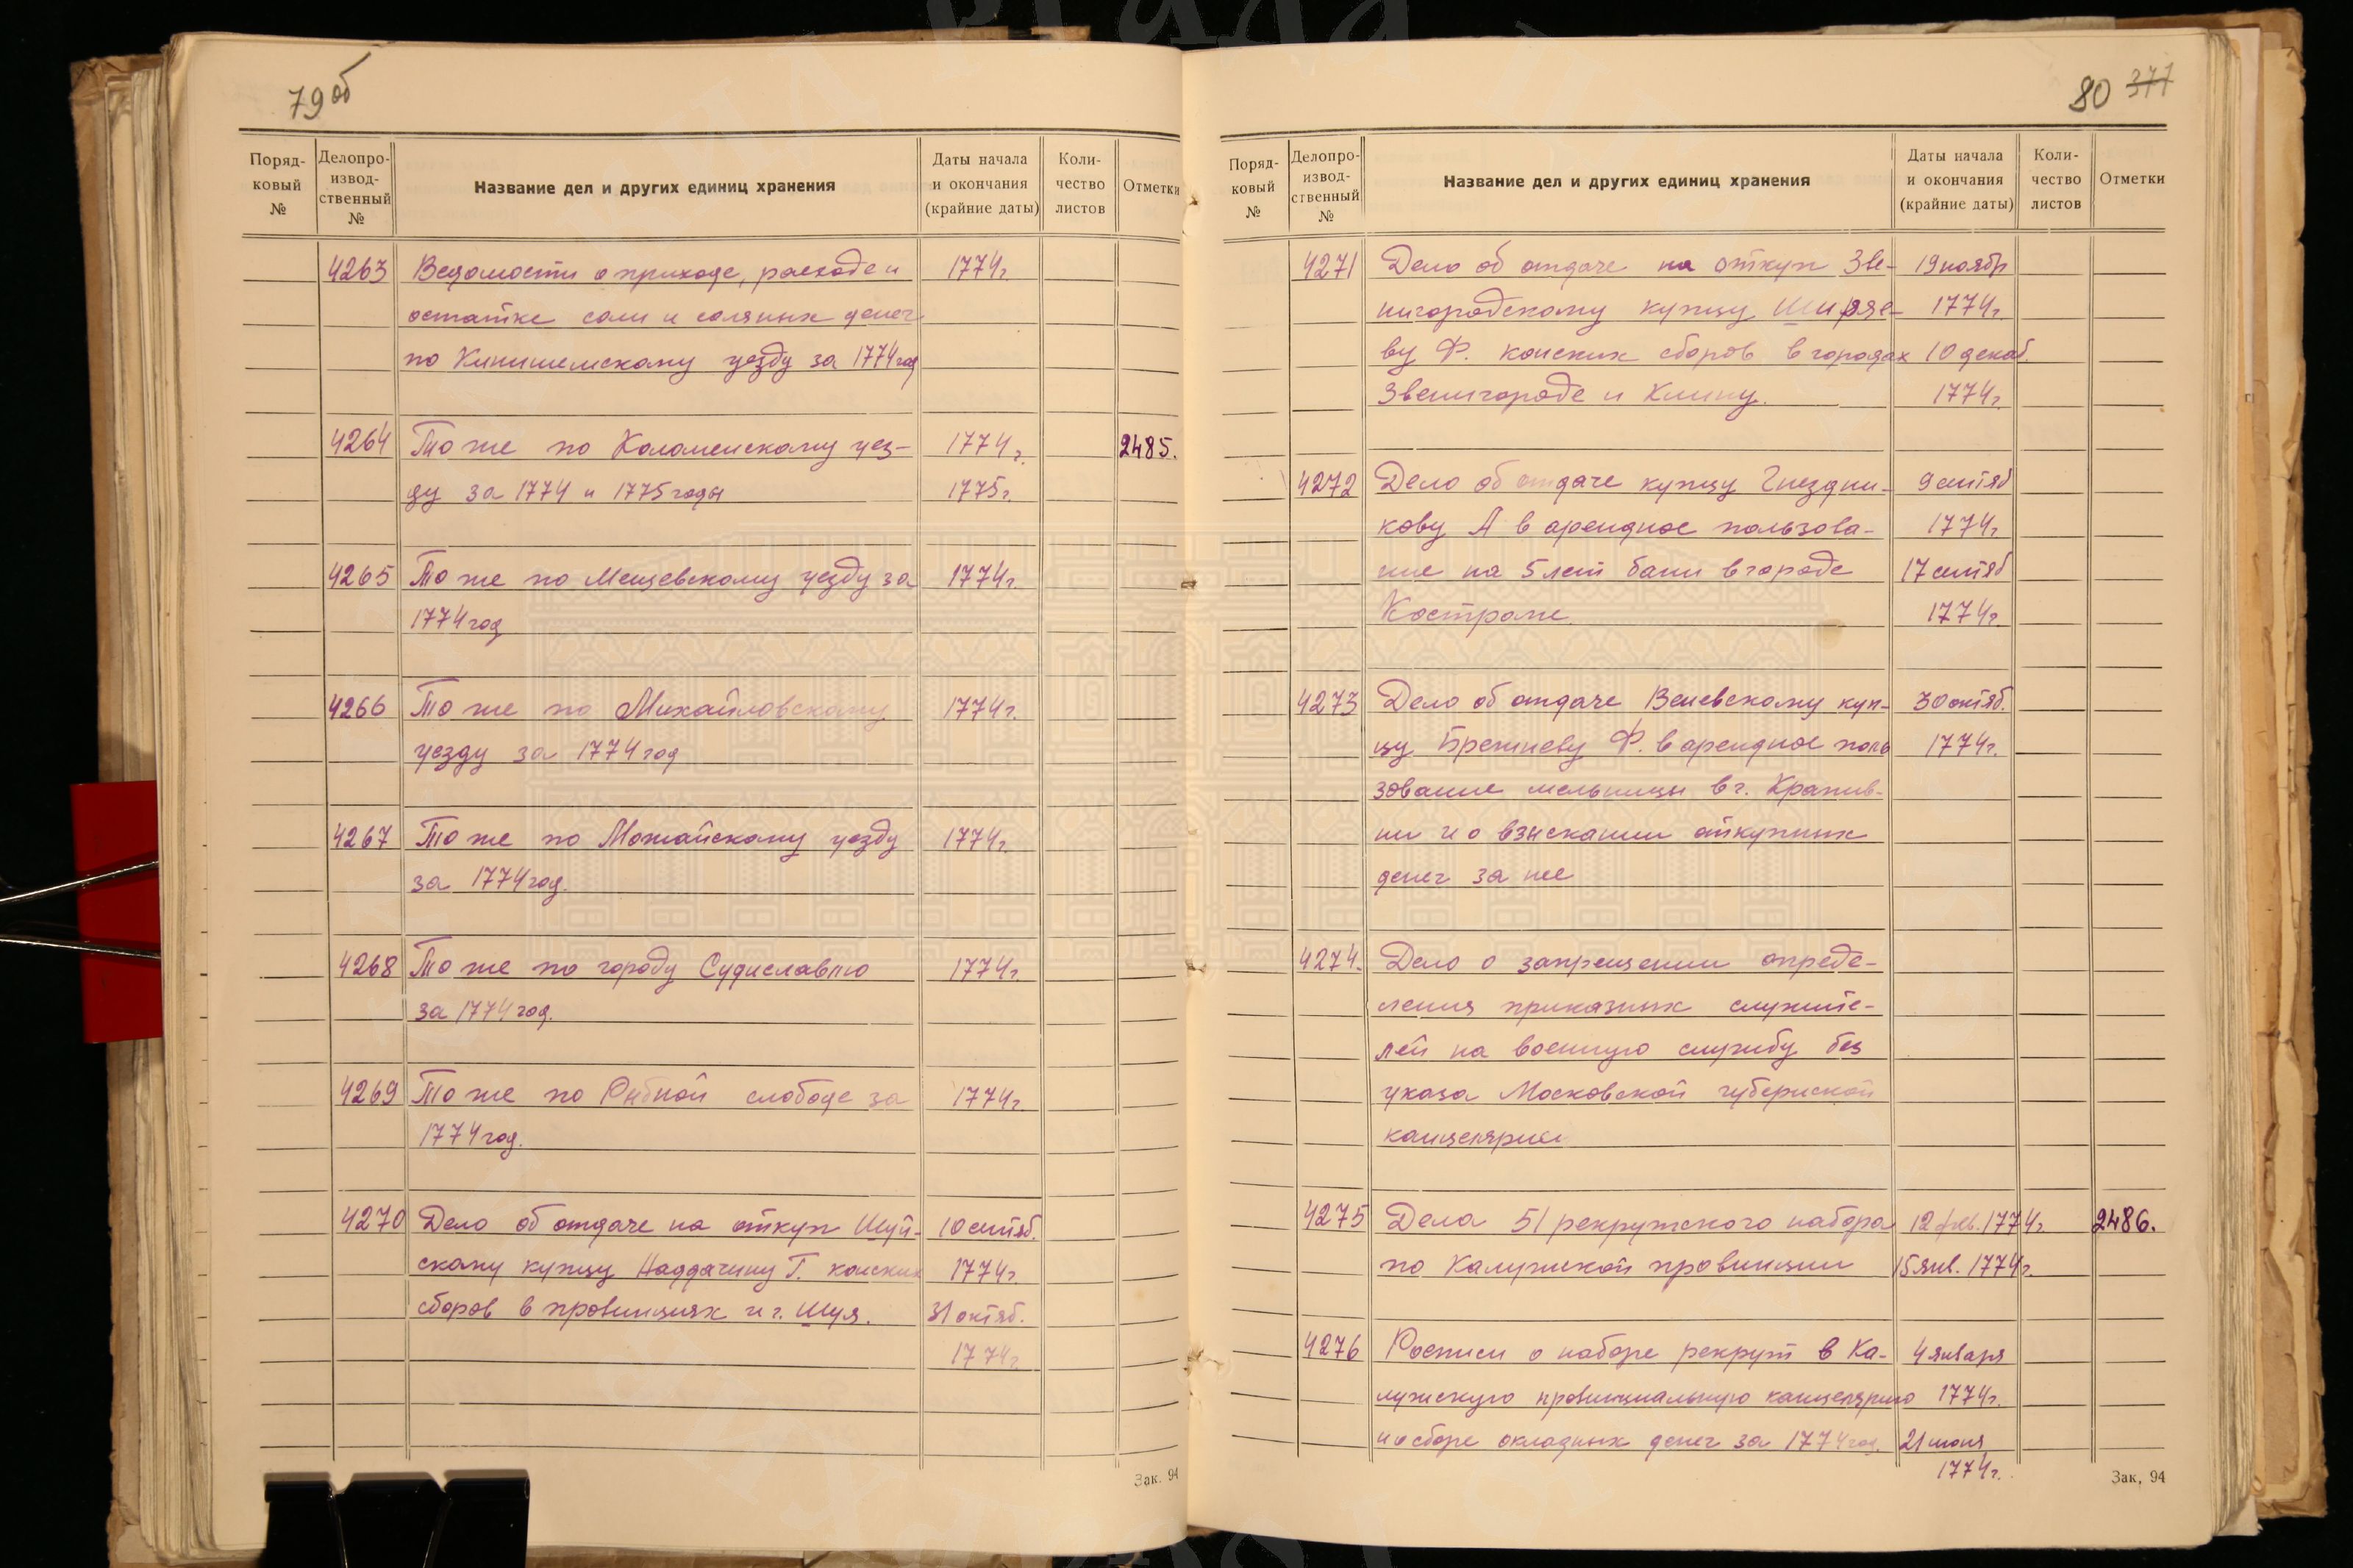 79об
Поряд-
ковый
№
Делопро-
извод-
ственный
№
Название дел и других единиц хранения
Даты начала
и окончания
(крайние даты)
Коли-
чество
листов
Отметки
4263 Ведомости о приходе, расходе и 1774г.
остатке соли и соляных денег
по Кинишемскому уезду за 1774 год
4264 То же по Коломенскому уез- 1774г. 2485.
ду за 1774 и 1775 годы 1775г.
4265 То же по Мещевскому уезду за 1774г.
1774 год
4266 То же по Михайловскому 1774г.
уезду за 1774 год
4267 То же по Можайскому уезду 1774г.
за 1774 год.
4268 То же по городу Судиславлю 1774г.
за 1774 год.
4269 То же по Рыбной слободе за 1774г.
1774 год.
4270 Дело об отдаче на откуп Шуй- 10 сентяб.
скому купцу Наддачину Г. конских 1774г.
сборов в провинциях и г. Шуя. 31 октяб.
1774г.
Зак. 94
80 377
Поряд-
ковый
№
Делопро-
извод-
ственный
№
Название дел и других единиц хранения
Даты начала
и окончания
(крайние даты)
Коли-
чество
листов
Отметки
4271 Дело об отдаче на откуп Зве- 19 ноябр
нигородскому купцу Ширяе- 1774г.
ву Ф. конских сборов в городах 10 декаб.
Звенигороде и Клину. 1774г.
4272 Дело об отдаче купцу Гнездни- 9 сентяб
кову А в арендное пользова- 1774г.
ние на 5 лет бани в городе 17 сентяб
Костроме. 1774г.
4273 Дело об отдаче Веневскому куп- 30 октяб.
цу Брежневу Ф. в арендное поль 1774г.
зование мельницы в г. Крапив-
ни и о взыскании откупных
денег за нее
4274. Дело о запрещении опреде-
ления приказных служите-
лей на военную службу без
указа Московской губернской
канцелярии
4275 Дела 51 рекружского набора 12 фев. 1774г. 2486.
по Калужской провинции 15 янв. 1774г.
4276 Росписи о наборе рекрут в Ка- 4 января
лужскую провинциальную канцелярию 1774г.
и о сборе окладных денег за 1774 год. 21 июня
1774г.
Зак. 94